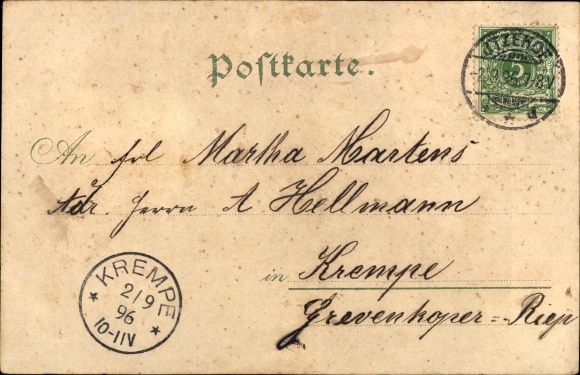 Postkarte.
ITZEHOE
5
An Frl Martha Martens
Adr. Herrn A Hellmann
in Krempe
Grevenkoper-Riep
KREMPE
2/9
96
10-11V